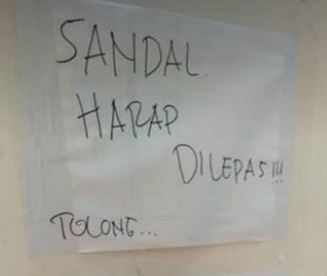 SANDAL.
HARAP
DILEPAS!!!
TOLONG...